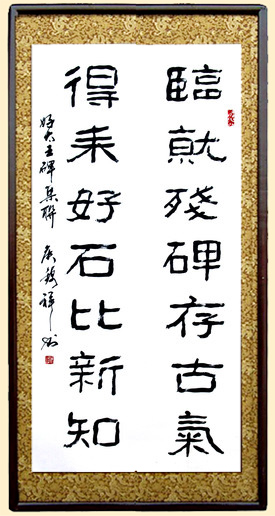 臨就殘碑存古氣
得來好石比新知
好大王碑集聯